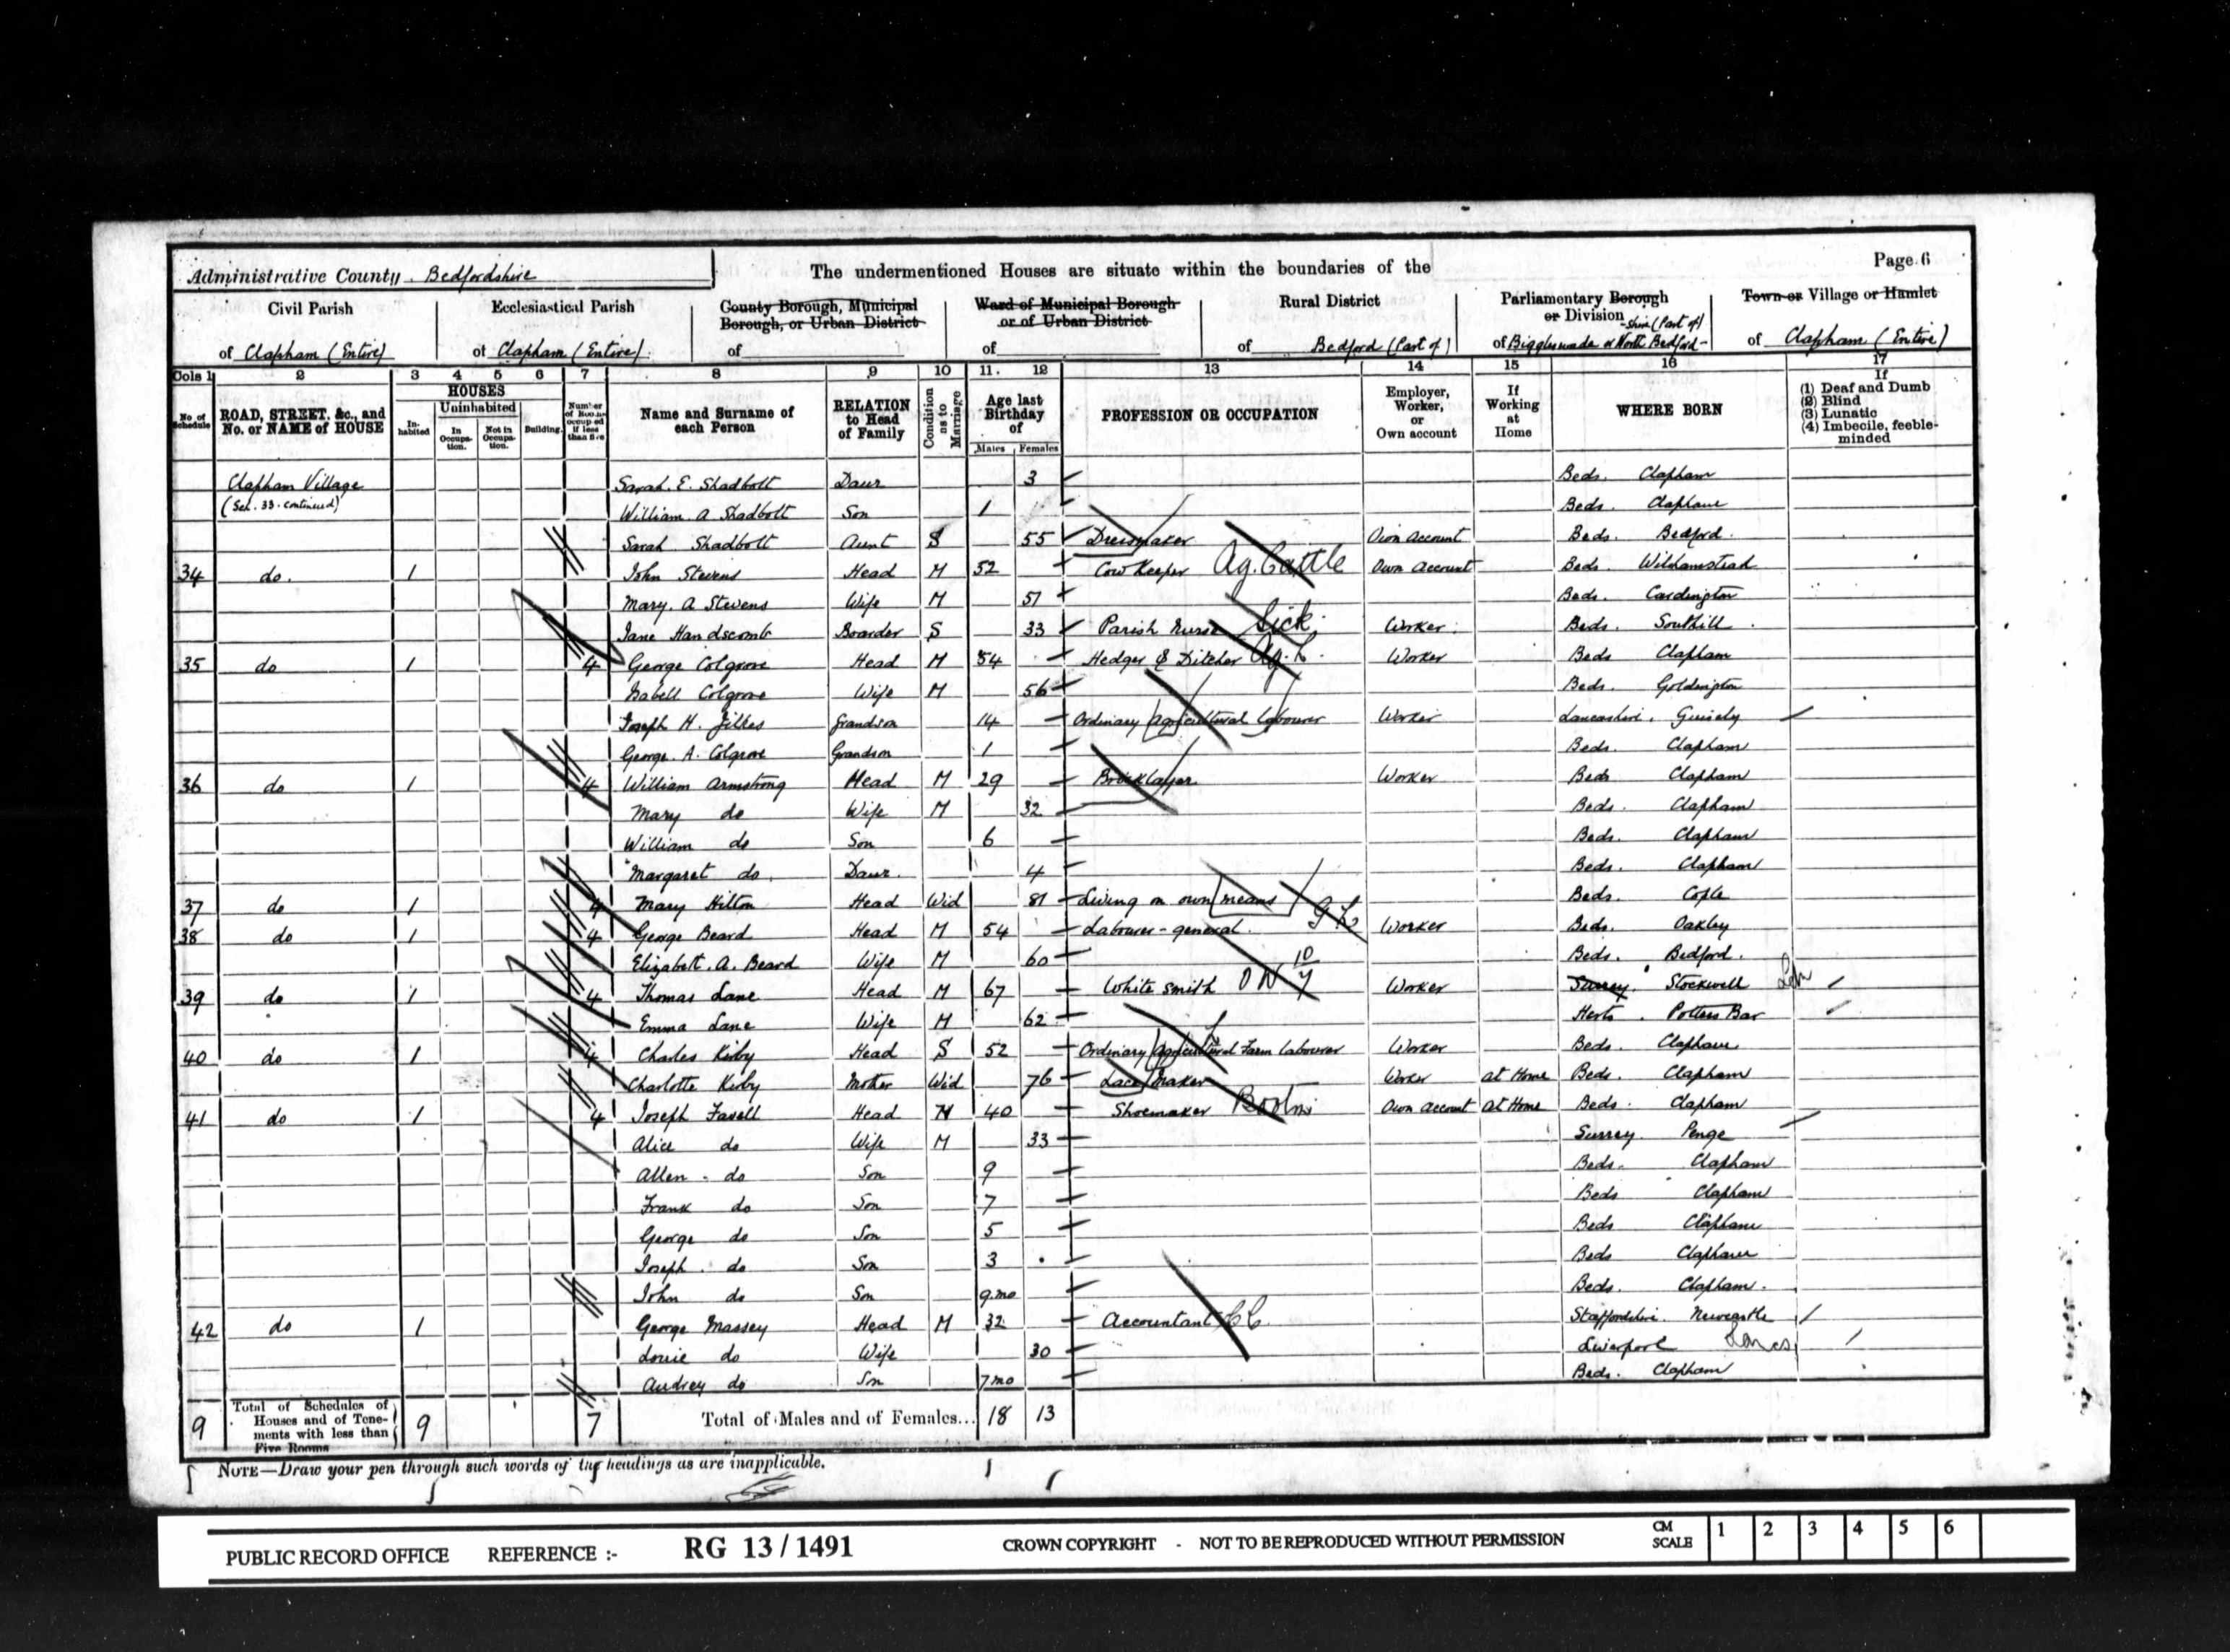 Page 6
Administrative County Bedfordshire
The undermentioned Houses are situate within the boundaries of the
Civil Parish
of Clapham (Entire)
Ecclesiastical Parish
of Clapham (Entire)
County Borough, Municipal Borough, or Urban District
of
Ward of Municipal Borough or of Urban District
of
Rural District
of Bedford (Part of)
Parliamentary Borough or Division
of Biggleswade or North Bedford-shire (Part of)
Town or Village or Hamlet
of Clapham (Entire)
Cols 1 2 3 4 5 6 7 8 9 10 11 12 13 14 15 16 17
No. of Schedule
ROAD, STREET, &c., and No. or NAME of HOUSE
HOUSES
In-habited
Uninhabited
In Occupa-tion.
Not in Occupa-tion.
Building.
Number of Rooms occupied if less than five
Name and Surname of each Person
RELATION to Head of Family
Condition as to Marriage
Age last Birthday of
Males Females
PROFESSION OR OCCUPATION
Employer, Worker, or Own account
If Working at Home
WHERE BORN
If
(1) Deaf and Dumb
(2) Blind
(3) Lunatic
(4) Imbecile, feeble-minded
Clapham Village Sarah. E. Shadbolt Daur 3 Beds. Clapham
(Sch. 33. continued) William. A Shadbolt Son 1 Beds. Clapham
Sarah Shadbolt Aunt S 55 Dressmaker Own Account Beds. Bedford.
34 do. 1 John Stevens Head M 52 Cow Keeper Ag. Cattle Own Account Beds. Wilhamstead
Mary. A Stevens Wife M 51 Beds. Cardington
Jane Handscomb Boarder S 33 Parish Nurse Sick Worker Beds. Southill
35 do 1 4 George Colgrove Head M 54 Hedger & Ditcher Ag. L. Worker Beds Clapham
Isabell Colgrove Wife M 56 Beds. Goldington
Joseph H. Gilkes Grandson 14 Ordinary agricultural labourer Worker Lancashire. Guisely
George. A. Colgrove Grandson 1 Beds. Clapham
36 do 1 4 William Armstrong Head M 29 Bricklayer Worker Beds Clapham
Mary do Wife M 32 Beds. Clapham
William do Son 6 Beds. Clapham
Margaret do. Daur. 4 Beds. Clapham
37 do 1 4 Mary Hilton Head Wid 81 Living on own means Beds. Cople
38 do 1 4 George Beard Head M 54 Labourer - general. G L Worker Beds. Oakley
Elizabeth. A. Beard Wife M 60 Beds. Bedford.
39 do 1 4 Thomas Lane Head M 67 White smith Worker Surrey. Stockwell Lon
Emma Lane Wife M 62 Herts. Potters Bar
40 do 1 4 Charles Kirby Head S 52 Ordinary agricultural Farm labourer Worker Beds. Clapham
Charlotte Kirby Mother Wid 76 Lace Maker Worker at Home Beds. Clapham
41 do 1 4 Joseph Favell Head M 40 Shoemaker Own account at Home Beds. Clapham
Alice do Wife M 33 Surrey. Penge
Allen do Son 9 Beds. Clapham
Frank do Son 7 Beds Clapham
George do Son 5 Beds Clapham
Joseph do Son 3 Beds Clapham
John do Son 9 mo Beds. Clapham.
42 do 1 George Massey Head M 32 Accountant Staffordshire. Newcastle
Louie do Wife 30 Liverpool Lancs
Audrey do Son 7 mo Beds. Clapham
9 Total of Schedules of Houses and of Tene-ments with less than Five Rooms 9 7 Total of Males and of Females... 18 13
NOTE—Draw your pen through such words of the headings as are inapplicable.
PUBLIC RECORD OFFICE REFERENCE :- RG 13 / 1491 CROWN COPYRIGHT - NOT TO BE REPRODUCED WITHOUT PERMISSION CM SCALE 1 2 3 4 5 6